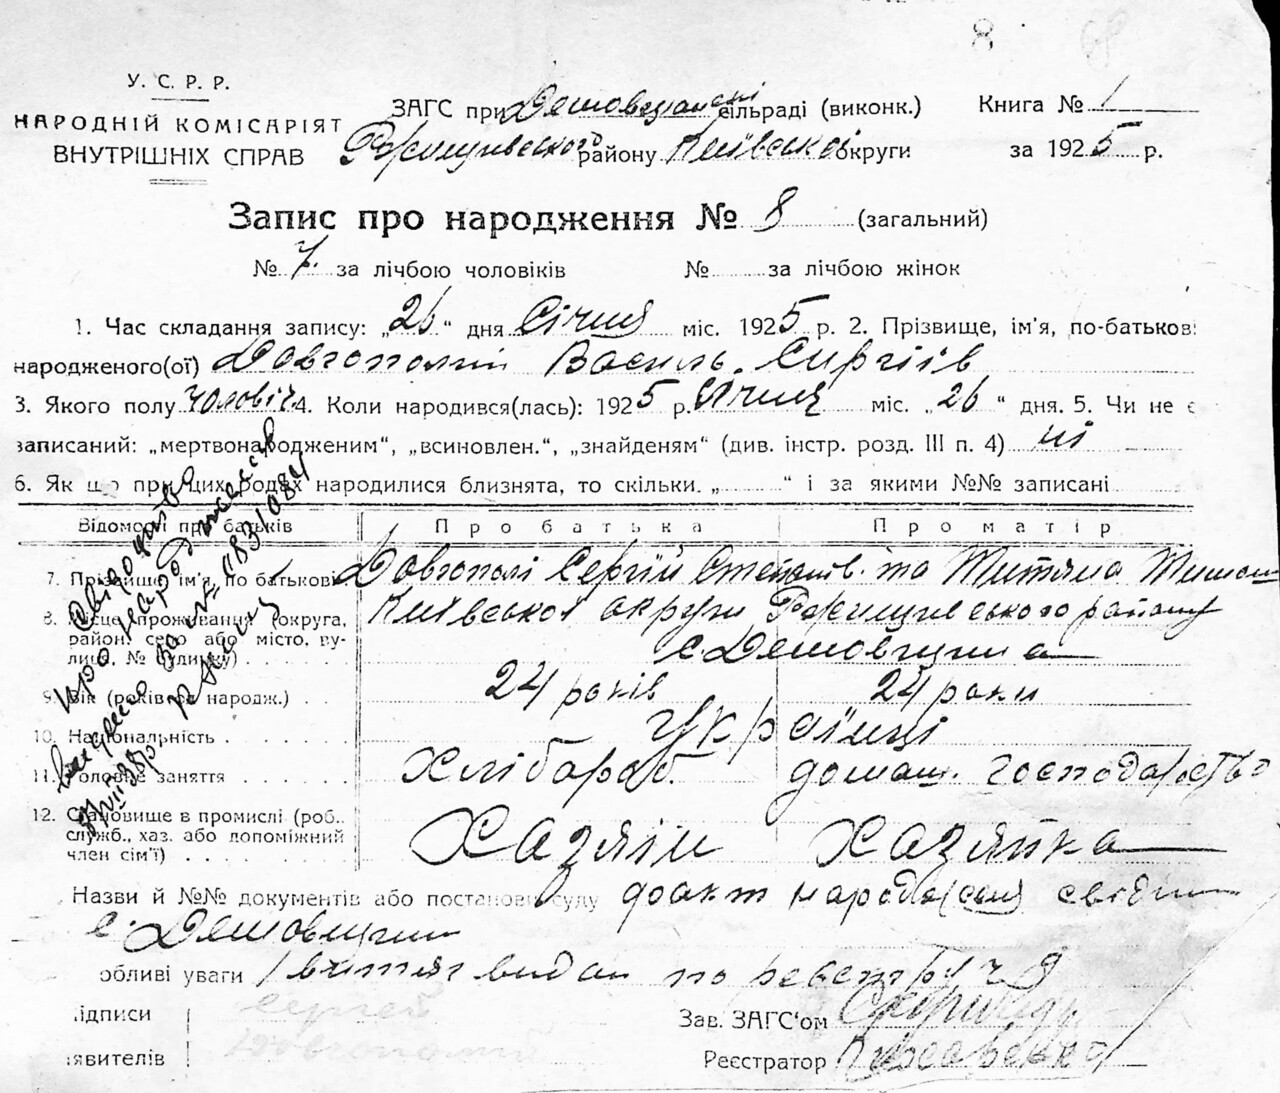 8 68
У. С. Р. Р.
НАРОДНІЙ КОМІСАРІЯТ
ВНУТРІШНІХ СПРАВ
ЗАГС при сільраді (виконк.) Книга № 1
району Київської округи за 1925 р.
Запис про народження № 8 (загальний)
№ 7. за лічбою чоловіків № за лічбою жінок
1. Час складання запису: „26“ дня Січня міс. 1925 р. 2. Прізвище, ім'я, по-батькові
народженого(ої) Довгополий Василь Сиргіїв
3. Якого полу чоловіч. 4. Коли народився(лась): 1925 р. Січня міс. „26“ дня. 5. Чи не є
записаний: „мертвонародженим“, „всиновлен.“, „знайденям“ (див. інстр. розд. III п. 4) ні
6. Як що при цих родах народилися близнята, то скільки „ “ і за якими №№ записані
Відомості про батьків Про батька Про матір
7. Прізвище, ім'я, по батькові Довгополі Сергій Степанів. та Титяна Тимош
8. Місце проживання (округа, район, село або місто, вулиця, № будинку) Київської округи району
с.
9. Вік (років од народж.) 24 років 24 роки
10. Національність Українці
11. Головне заняття Хлібороб. домаш. господарство
12. Становище в промислі (роб., служб., хаз. або допоміжний член сім'ї) Хазяїн Хазяйка
Назви й №№ документів або постанови суду факт народження свідчи
с.
обливі уваги витяг видан по реєстру ч 9
ідписи Сергей
явителів Довгополий
Зав. ЗАГС'ом
Реєстратор
Свідоцтво
про народження
видано за № 1831084